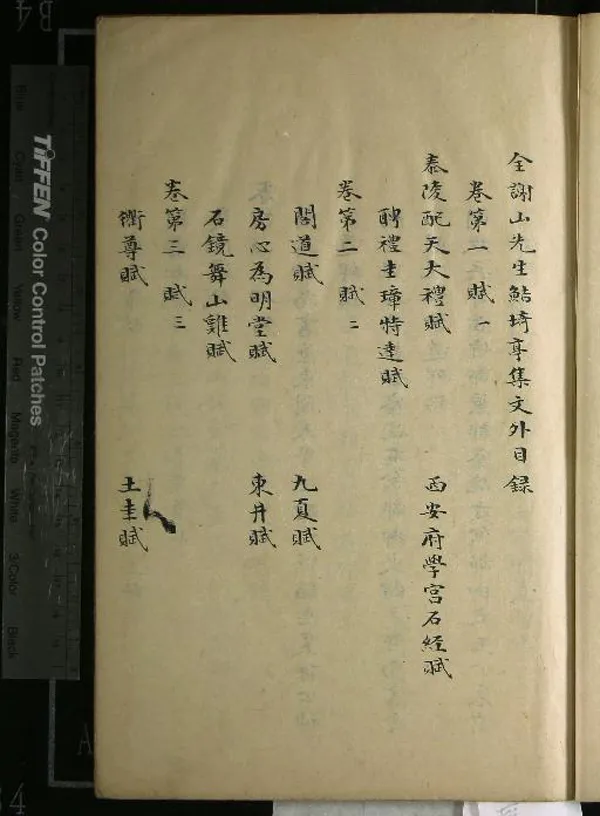 全謝山先生鮚埼亭集文外目錄
卷第一 賦一
泰陵配天大禮賦 西安府學宮石經賦
聘禮圭璋特達賦
卷第二 賦二
閣道賦 九夏賦
房心為明堂賦 東井賦
石鏡舞山雞賦
卷第三 賦三
衢尊賦 土圭賦
TIFFEN Color Control Patches
Blue
Cyan
Green
Yellow
Red
Magenta
White
3/Color
Black